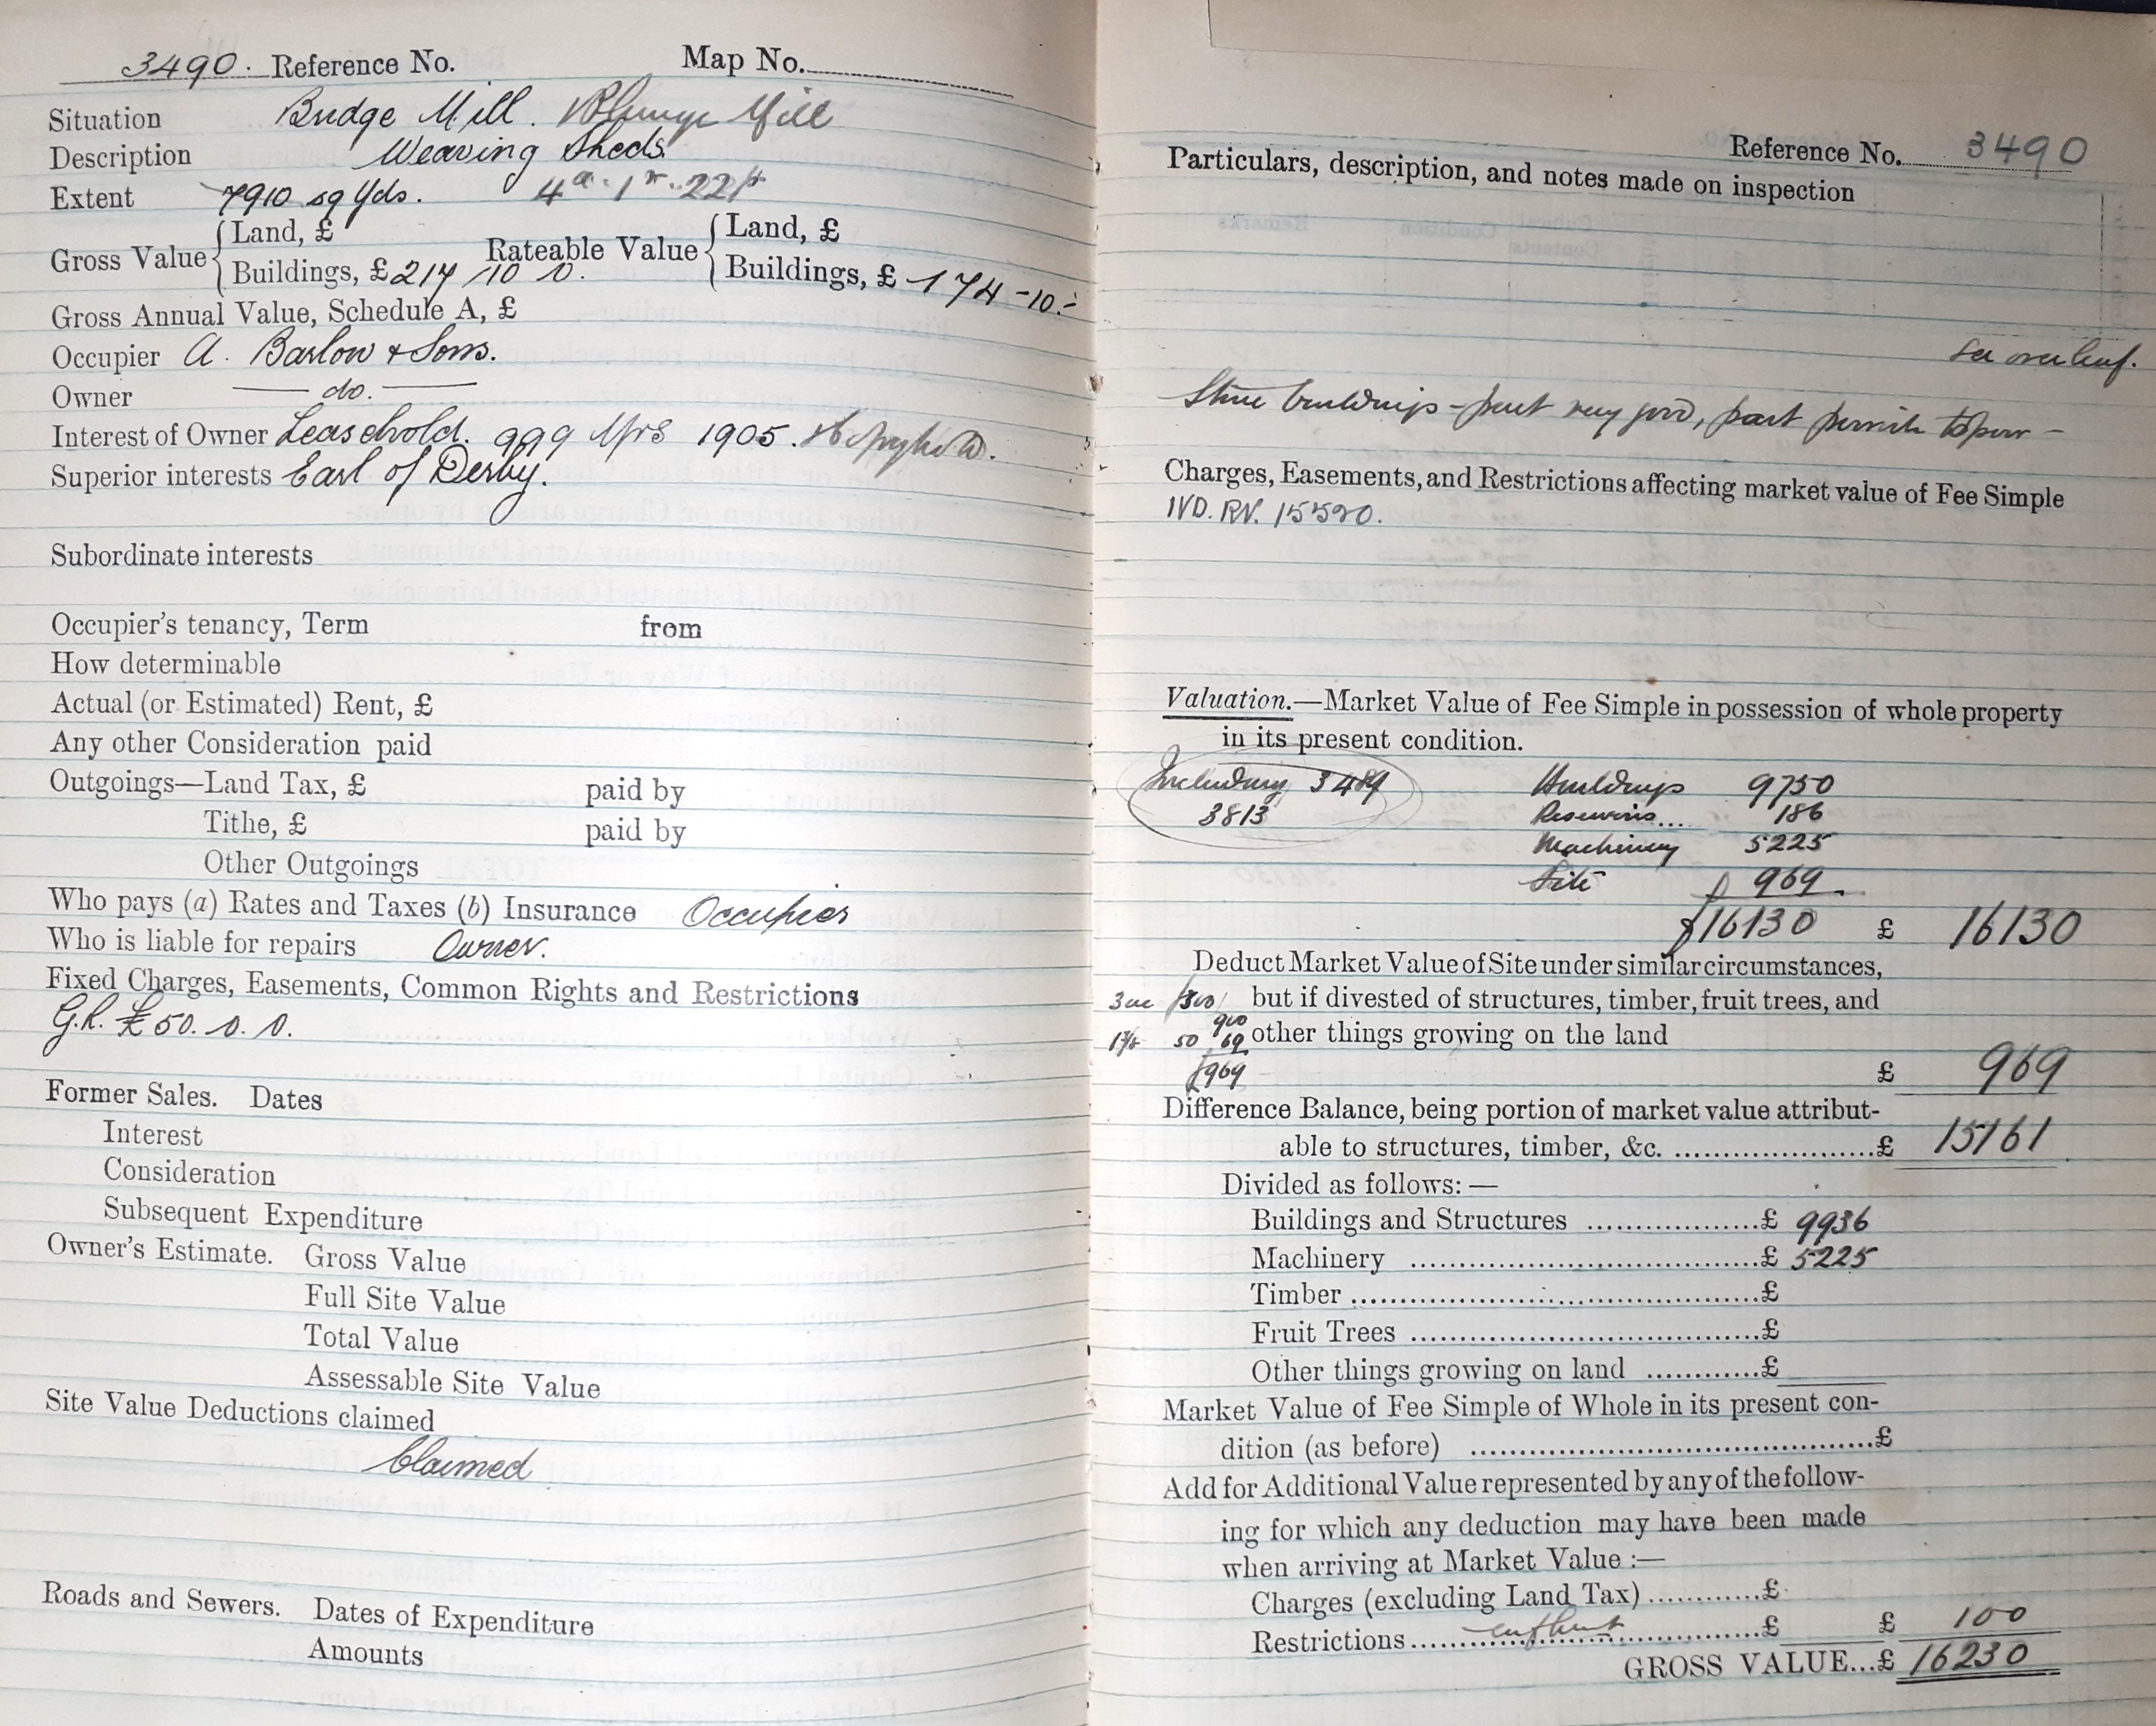 3490. Reference No. Map No.
Situation Bridge Mill. Plunge Mill
Description Weaving Sheds.
Extent 7910 sq Yds. 4a. 1r. 22p
Gross Value { Land, £ Rateable Value { Land, £
Buildings, £ 217/10 0. Buildings, £ 174-10.-
Gross Annual Value, Schedule A, £
Occupier A. Barlow & Sons.
Owner — do. —
Interest of Owner Leasehold. 999 Yrs 1905.
Superior interests Earl of Derby.
Subordinate interests
Occupier's tenancy, Term from
How determinable
Actual (or Estimated) Rent, £
Any other Consideration paid
Outgoings—Land Tax, £ paid by
Tithe, £ paid by
Other Outgoings
Who pays (a) Rates and Taxes (b) Insurance Occupier
Who is liable for repairs Owner.
Fixed Charges, Easements, Common Rights and Restrictions
G.R. £50. 0. 0.
Former Sales. Dates
Interest
Consideration
Subsequent Expenditure
Owner's Estimate. Gross Value
Full Site Value
Total Value
Assessable Site Value
Site Value Deductions claimed
Claimed
Roads and Sewers. Dates of Expenditure
Amounts
Reference No. 3490
Particulars, description, and notes made on inspection
See overleaf.
Stone buildings - part very good, part
Charges, Easements, and Restrictions affecting market value of Fee Simple
IVD. RV. 15590.
Valuation.—Market Value of Fee Simple in possession of whole property
in its present condition.
Including 3489 Buildings 9750
3813 Reservoirs... 186
Machinery 5225
Site £ 969.
£16130 £ 16130
Deduct Market Value of Site under similar circumstances,
but if divested of structures, timber, fruit trees, and
other things growing on the land
£969 £ 969
Difference Balance, being portion of market value attribut-
able to structures, timber, &c. ....................£ 15161
Divided as follows:—
Buildings and Structures ..................£ 9936
Machinery ....................................£ 5225
Timber ............................................£
Fruit Trees ....................................£
Other things growing on land ............£
Market Value of Fee Simple of Whole in its present con-
dition (as before) ..........................................£
Add for Additional Value represented by any of the follow-
ing for which any deduction may have been made
when arriving at Market Value :—
Charges (excluding Land Tax) ............£
Restrictions ....................................£ £ 100
GROSS VALUE...£ 16230